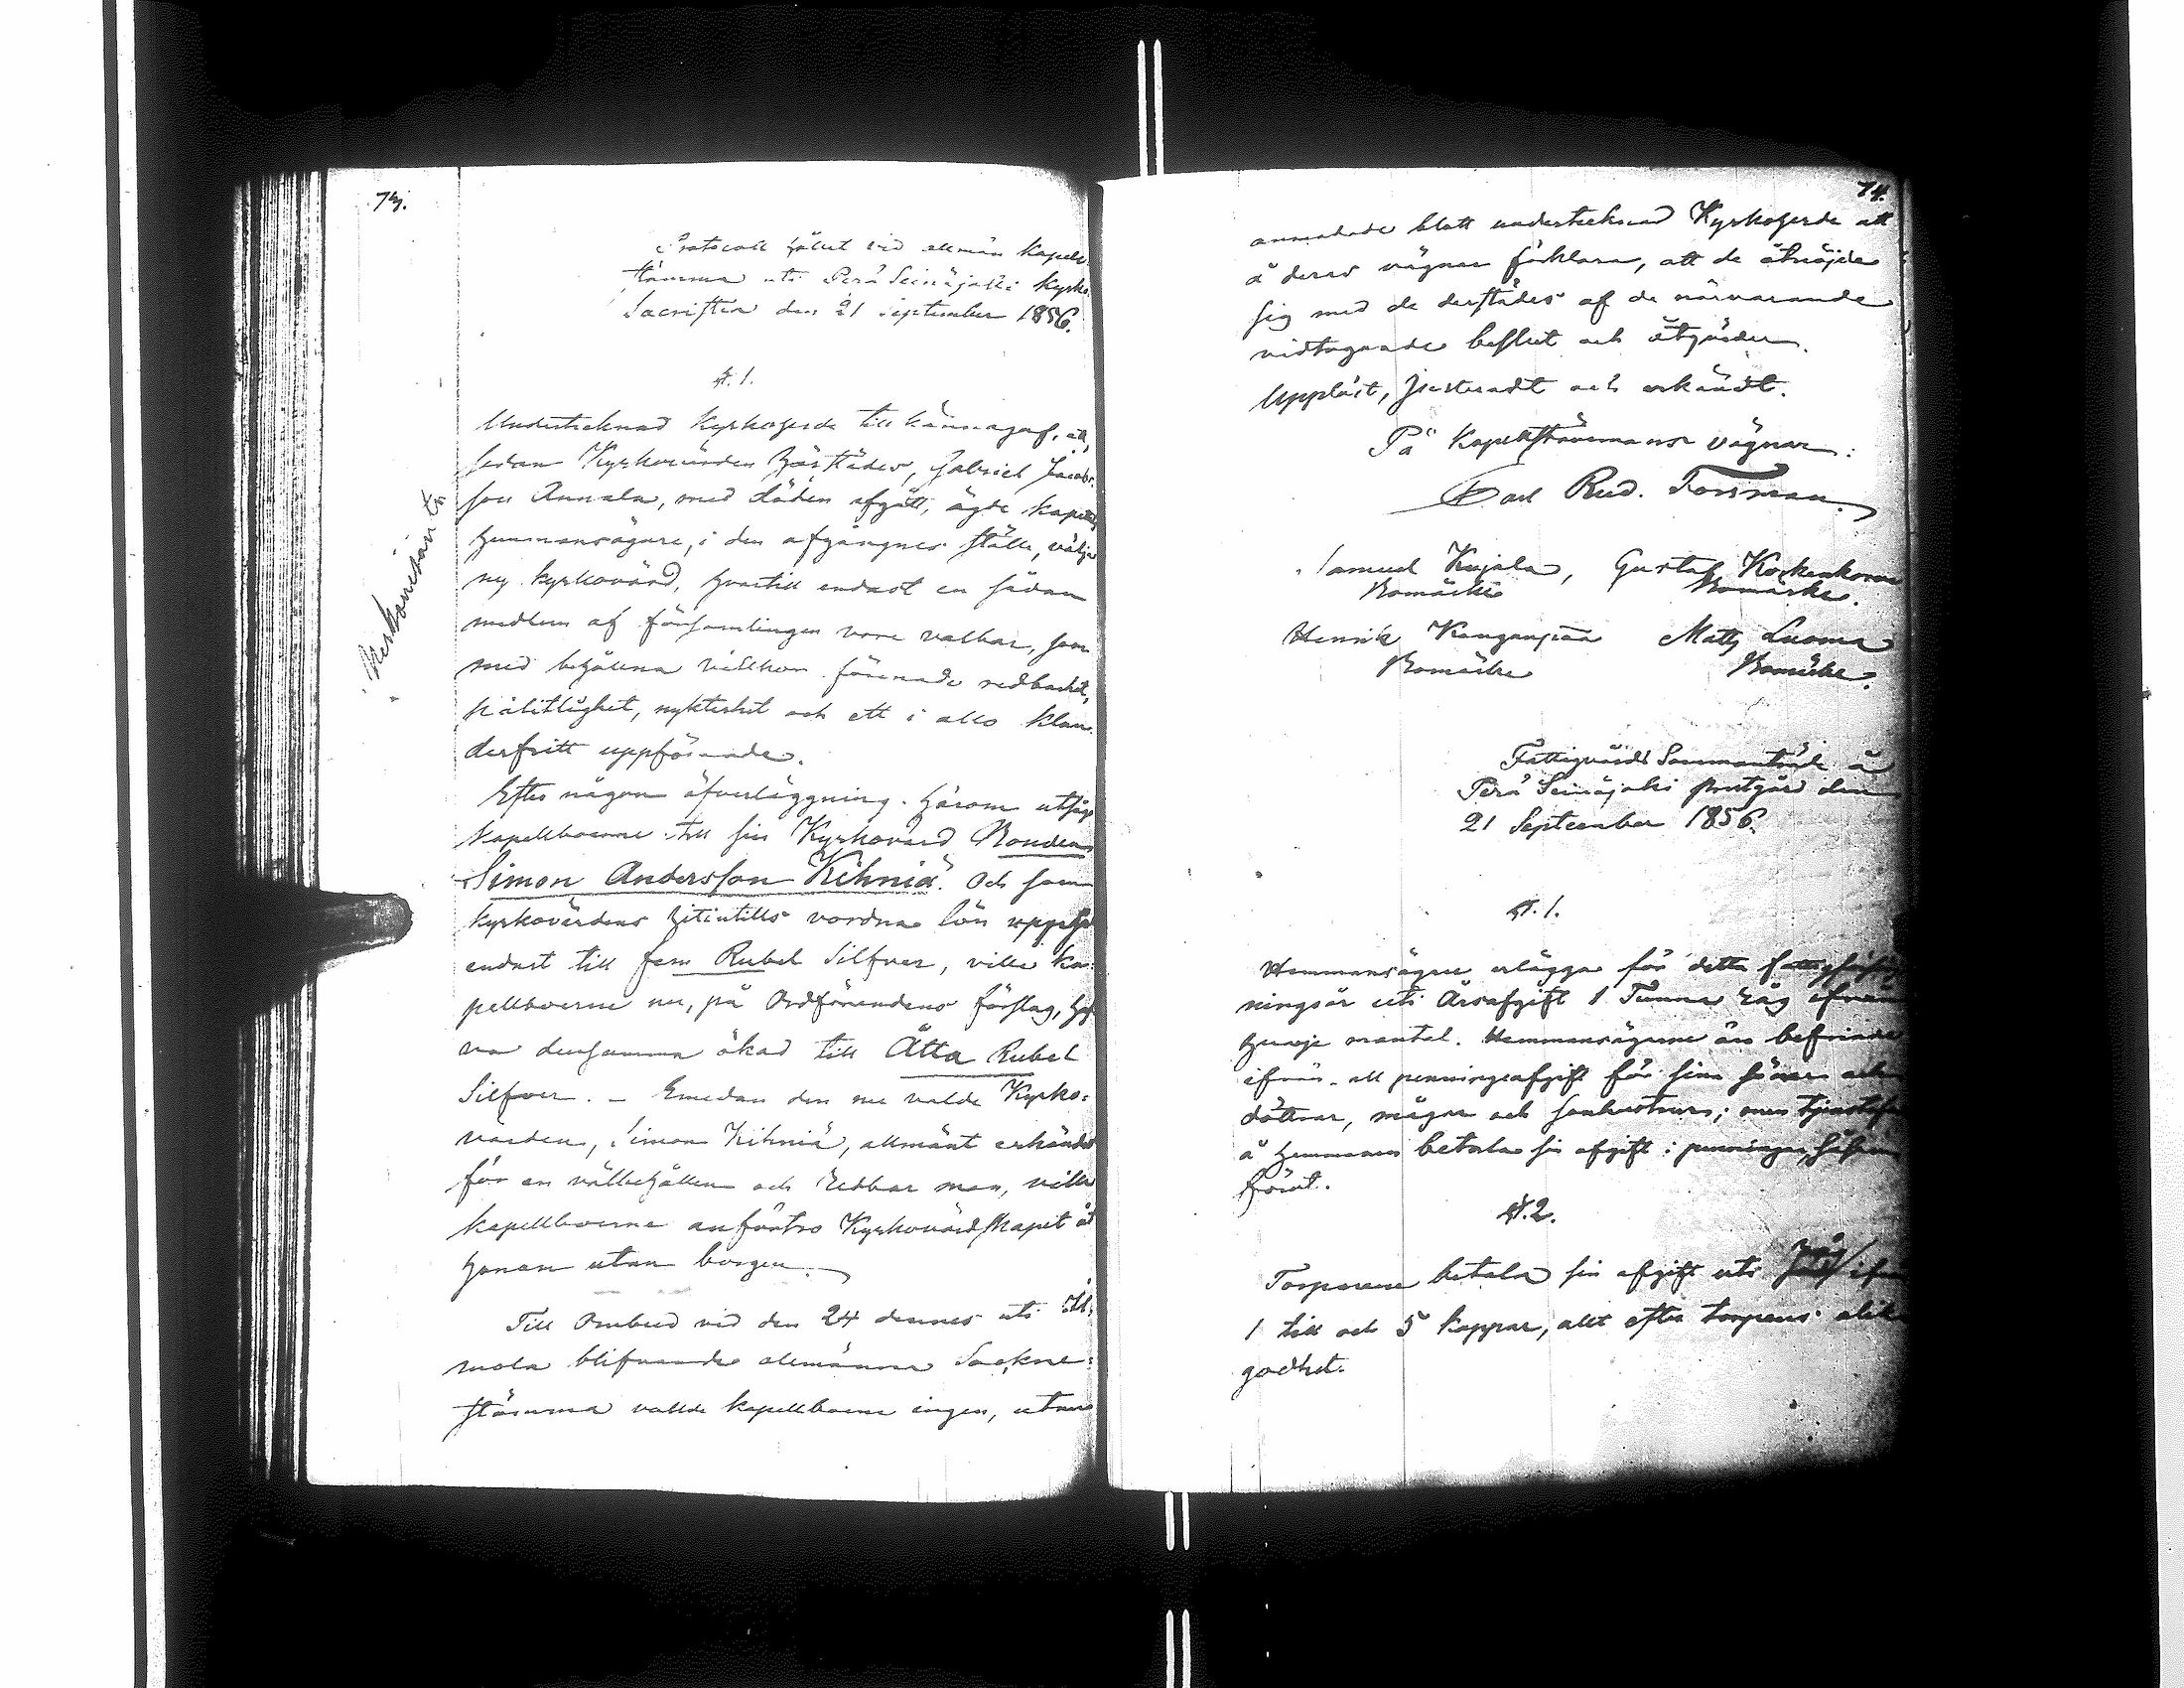 73.
Protocoll hållet vid allmän Kapell-
stämma uti Perä Seinäjoki Kyrko
Sacristia den 21 September 1856.
§. 1.
Undertecknad Kyrkoherde till kännagaf, att,
sedan Kyrkovärden härstädes, Gabriel Jacobs-
son Annala, med döden afgått, ägde kapells
hemmansägare, i den afgångnes ställe, välja
ny kyrkovärd, hvartill endast en sådan
medlem af församlingen vore valbar, som
med behållna villkor förenade redbarhet,
pålitlighet, nykterhet och ett i allo klan-
derfritt uppförande.
Kirkonisäntä
Efter någon öfverläggning härom utsågo
kapellboerne till sin Kyrkovärd Bonden
Simon Andersson Kihniä. Och som
kyrkovärdens hitintills vordna lön uppgått
endast till fem Rubel Silfver, ville ka-
pellboerne nu, på Ordförandens förslag, haf-
va densamma ökad till Åtta Rubel
Silfver. – Emedan den nu valde Kyrko-
värden, Simon Kihniä, allmänt erkändes
för en välbehållen och redbar man, ville
kapellboerne anförtro Kyrkovärdskapet åt
honom utan borgen.
Till Ombud vid den 24 dennes uti Il-
mola blifvande allmänna Sockne-
stämma valde kapellboerne ingen, utan
74.
anmodade blott undertecknad Kyrkoherde att
å deras vägnar förklara, att de åtnöjde
sig med de derstädes af de närvarande
vidtagande beslut och åtgärder.
Uppläst, justeradt och erkändt.
På Kapellstämmans vägnar:
Carl Rud. Forsman
Samuel Kujala, Gustaf Kockenkorva
Bomärke Bomärke.
Henrik Kangaspää Matts Luoma
Bomärke Bomärke.
Fattigvårds Sammanträde å
Perä Seinäjoki prestgård den
21 September 1856.
§. 1.
Hemmansägare erlägga för detta
ningsår uti Årsafgift 1 Tunna Råg ifrån
hvarje mantal. Hemmansägarne äro befriade
ifrån all penningeafgift för sina söner och
döttrar, mågar och sonhustrur; men tjenstefolk
å hemmanen betala sin afgift i penningar, såsom
förut.
§. 2.
Torparene betala sin afgift uti Råg ifrån
1 till och 5 kappar, allt efter torpens olika
godhet.